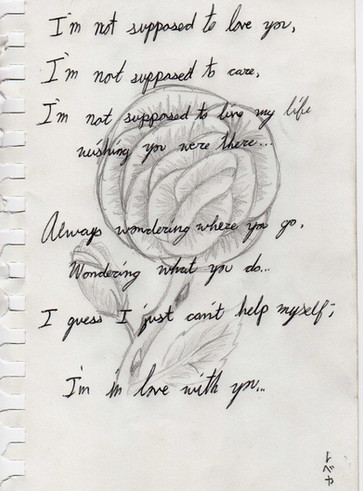 I'm not supposed to love you,
I'm not supposed to care,
I'm not supposed to live my life
wishing you were there...
Always wondering where you go,
Wondering what you do...
I guess I just can't help myself;
I'm in love with you...